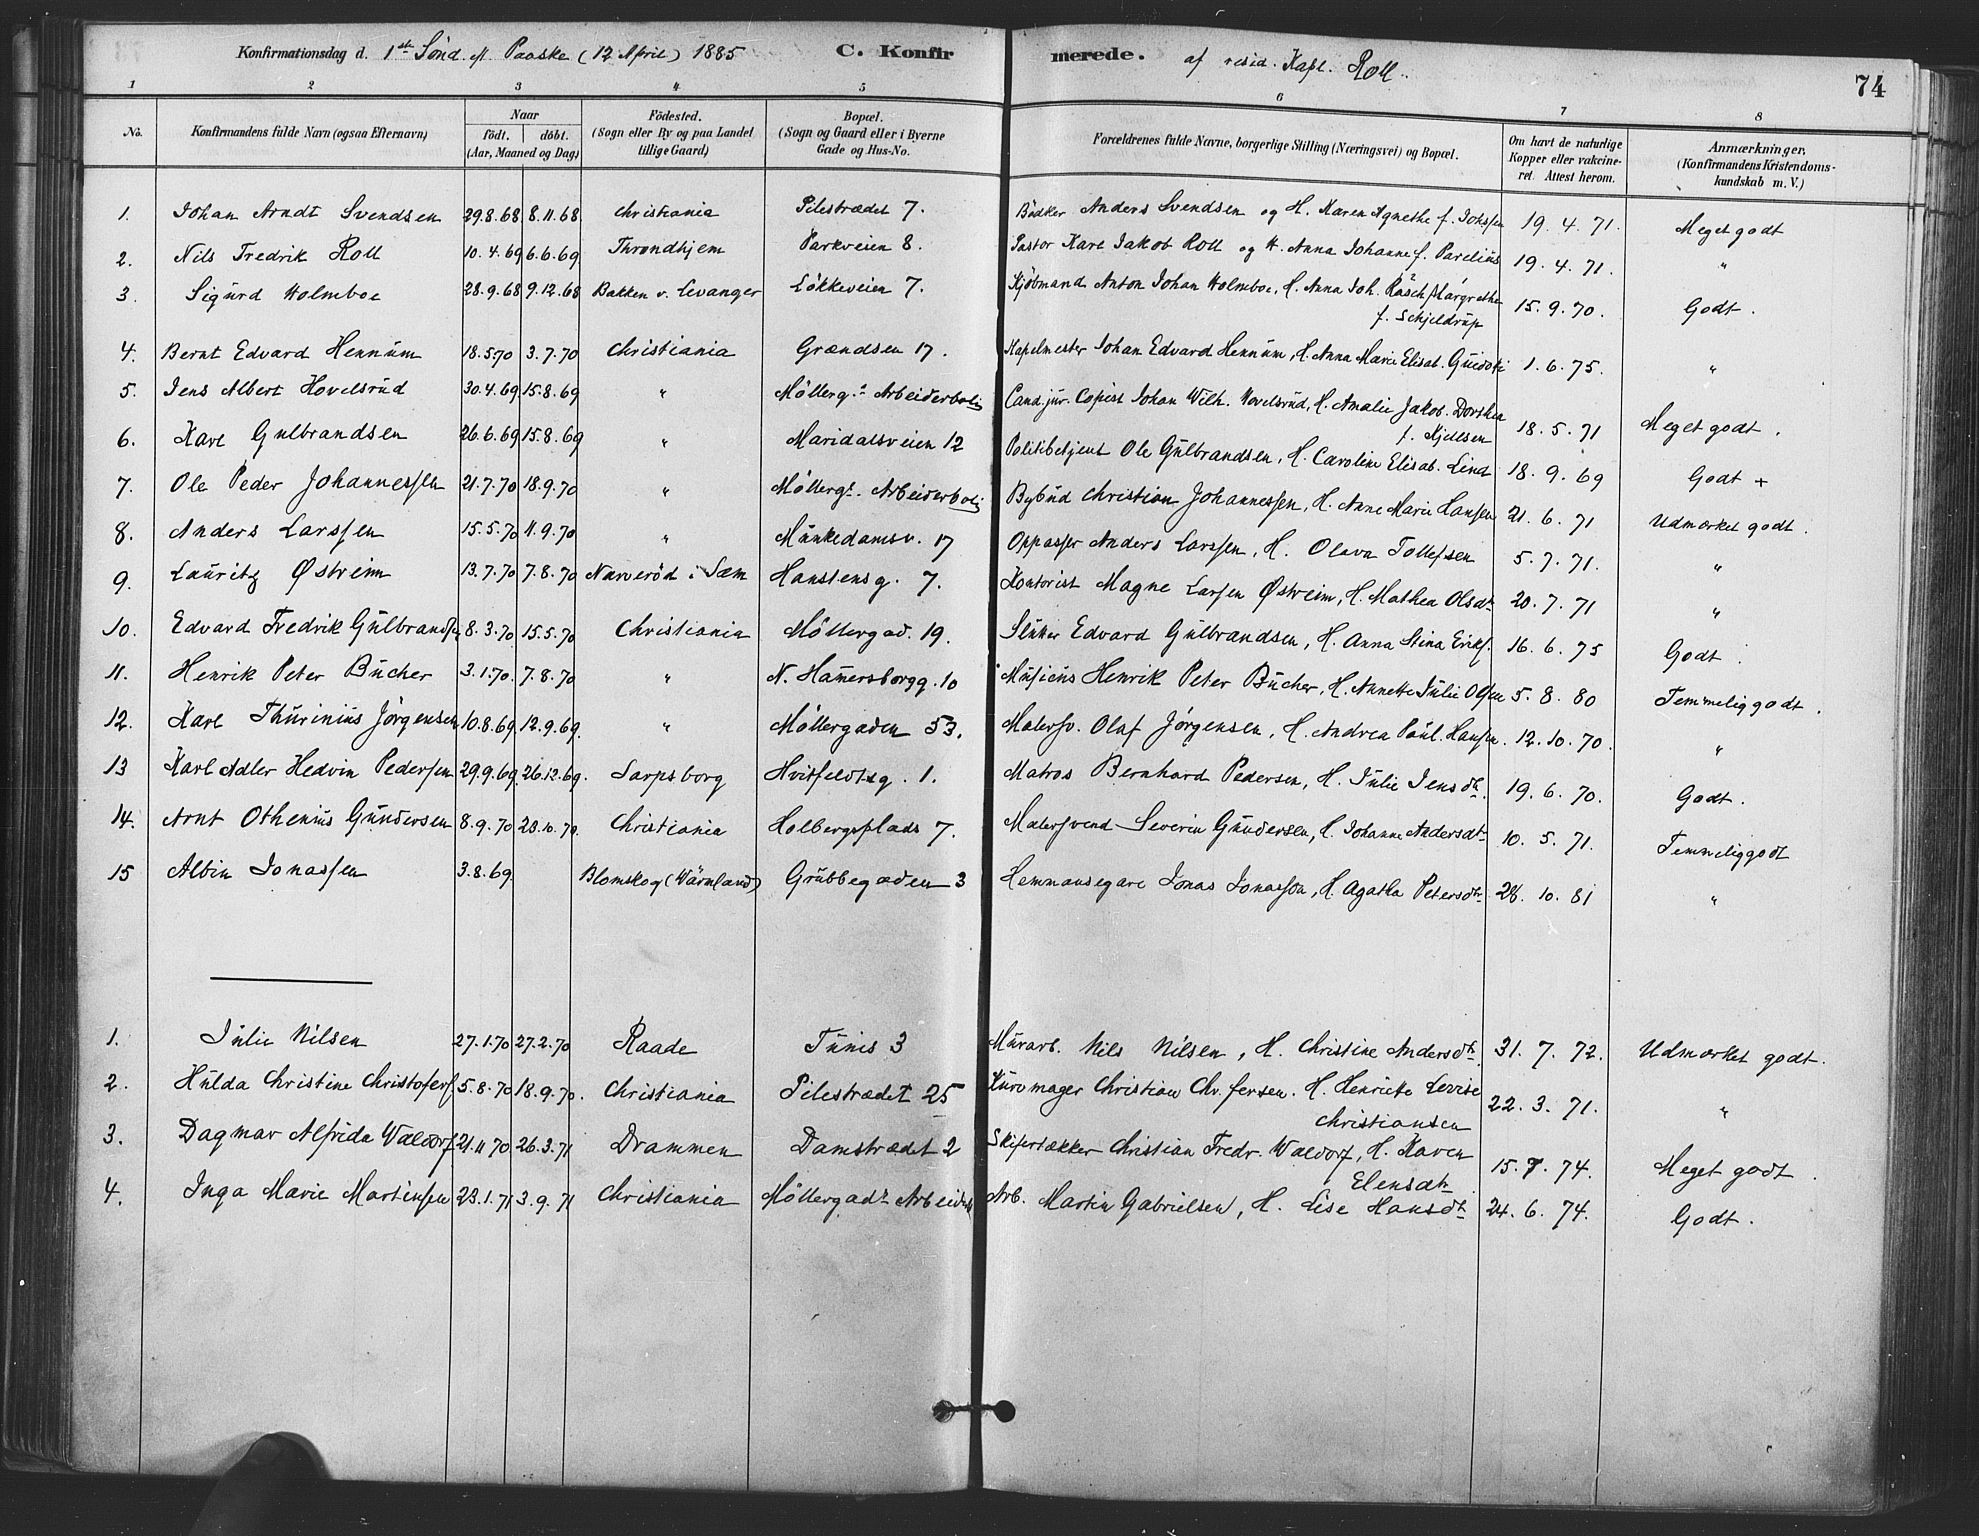 Konfirmationsdag d. 1st Sønd. e/ Paaske (12 April) 1885 C. Konfirmerede. af resid. Kapl. Roll. 74
1 2 3 4 5 6 7 8
No. Konfirmandens fulde Navn (ogsaa Efternavn) Naar født. døbt. (Aar, Maaned og Dag) Fødested. (Sogn eller By og paa Landet tillige Gaard) Bopæl. (Sogn og Gaard eller i Byerne Gade og Hus-No. Forældrenes fulde Navne, borgerlige Stilling (Næringsvei) og Bopæl. Om havt de naturlige Kopper eller vakcineret. Attest herom. Anmærkninger. (Konfirmandens Kristendomskundskab m. V.)
1. Johan Arndt Svendsen 29.8.68 8.11.68 Christiania Pilestrædet 7. Bødker Anders Svendsen og H. Maren Agnethe f. Johssen 19.4.71. Meget godt
2. Nils Fredrik Roll 10.4.69 6.6.69 Throndhjem Parkveien 8. Pastor Karl Jakob Roll og H. Anna Johanne f. Parelius 19.4.71. "
3. Sigurd Holmboe 28.9.68 9.12.68 Bakken v. Levanger Løkkeveien 7. Kjøbmand Anton Johan Holmboe, H. Anna Joh. Rasch Margrethe f. Schjeldrup 15.9.70. Godt.
4. Bernt Edvard Hennum 18.5.70 3.7.70 Christiania Grændsen 17. Kapelmester Johan Edvard Hennum, H. Anna Marie Elisab. Guidotti 1.6.75. "
5. Jens Albert Hovelsrud 30.4.69 15.8.69 " Møllerg. Arbeiderbolig Cand. jur. Copist Johan Wilh. Hovelsrud, H. Amalie Jakob. Dorthea f. Kjelsen 18.5.71 Meget godt.
6. Karl Gulbrandsen 26.6.69 15.8.69 " Maridalsveien 12 Politibetjent Ole Gulbrandsen, H. Caroline Elisab. Lind 18.9.69 Godt +
7. Ole Peder Johannessen 21.7.70 18.9.70 " Møllergt. Arbeiderbolig Bybud Christian Johannessen, H. Anne Marie Hansen 21.6.71 Udmærket godt.
8. Anders Larssen 15.5.70 11.9.70 " Munkedamsv. 17 Oppasser Anders Larssen, H. Olava Tollefsen 5.7.71. "
9. Lauritz Østreim 13.7.70 7.8.70 Narverød i Sæm Hanstensg. 7. Kontorist Magne Larsen Østreim, H. Mathea Olsdt. 20.7.71 "
10. Edvard Fredrik Gulbrandsen 8.3.70 15.5.70 Christiania Møllergad. 19. Slukker Edvard Gulbrandsen, H. Anna Stina Eriks. 16.6.75 Godt.
11. Henrik Peter Bücher 3.1.70. 7.8.70 " N. Hamersborgg. 10 Musicus Henrik Peter Bücher, H. Annette Julie Olsen 5.8.80 Temmelig godt.
12. Karl Thurinius Jørgensen 10.8.69 12.9.69. " Møllergaden 53. Malersv. Olaf Jørgensen, H. Andrea Paul. Hansen. 12.10.70. "
13 Karl Adler Hedvin Pedersen 29.9.69. 26.12.69. Sarpsborg Hvitfeldtsg. 1. Matros Bernhard Pedersen, H. Julie Jensdt. 19.6.70. Godt.
14. Arnt Othenius Gundersen 8.9.70 23.10.70. Christiania Holbergsplads 7. Malersvend Severin Gundersen, H. Johanne Andersdt. 10.5.71. Temmelig godt
15 Albin Jonassen 3.8.69. Blomskog (Wärmland) Grubbegaden 3 Hemmansegare Jonas Jonasson, H. Agatha Petersdtr. 28.10.81 "
1. Julie Nilsen 27.1.70 27.2.70 Raade Tunis 3 Murarb. Nils Nilsen, H. Christine Andersdt. 31.7.72. Udmærket godt.
2. Hulda Christine Christofers 5.8.70 18.9.70. Christiania Pilestrædet 25 Kurvmager Christian Chr.fersen. H. Henriette Levise Christiansen 22.3.71. "
3. Dagmar Alfrida Waldorf 21.11.70 26.3.71 Drammen Damstrædet 2 Skifertækker Christian Fredr. Waldorf, H. Karen Elensdtr. 15.7.74. Meget godt.
4. Inga Marie Martinsen 23.1.71 3.9.71 Christiania Møllergadt. Arbeiderb Arb. Martin Gabrielsen, H. Lise Hansdt. 24.6.74. Godt.